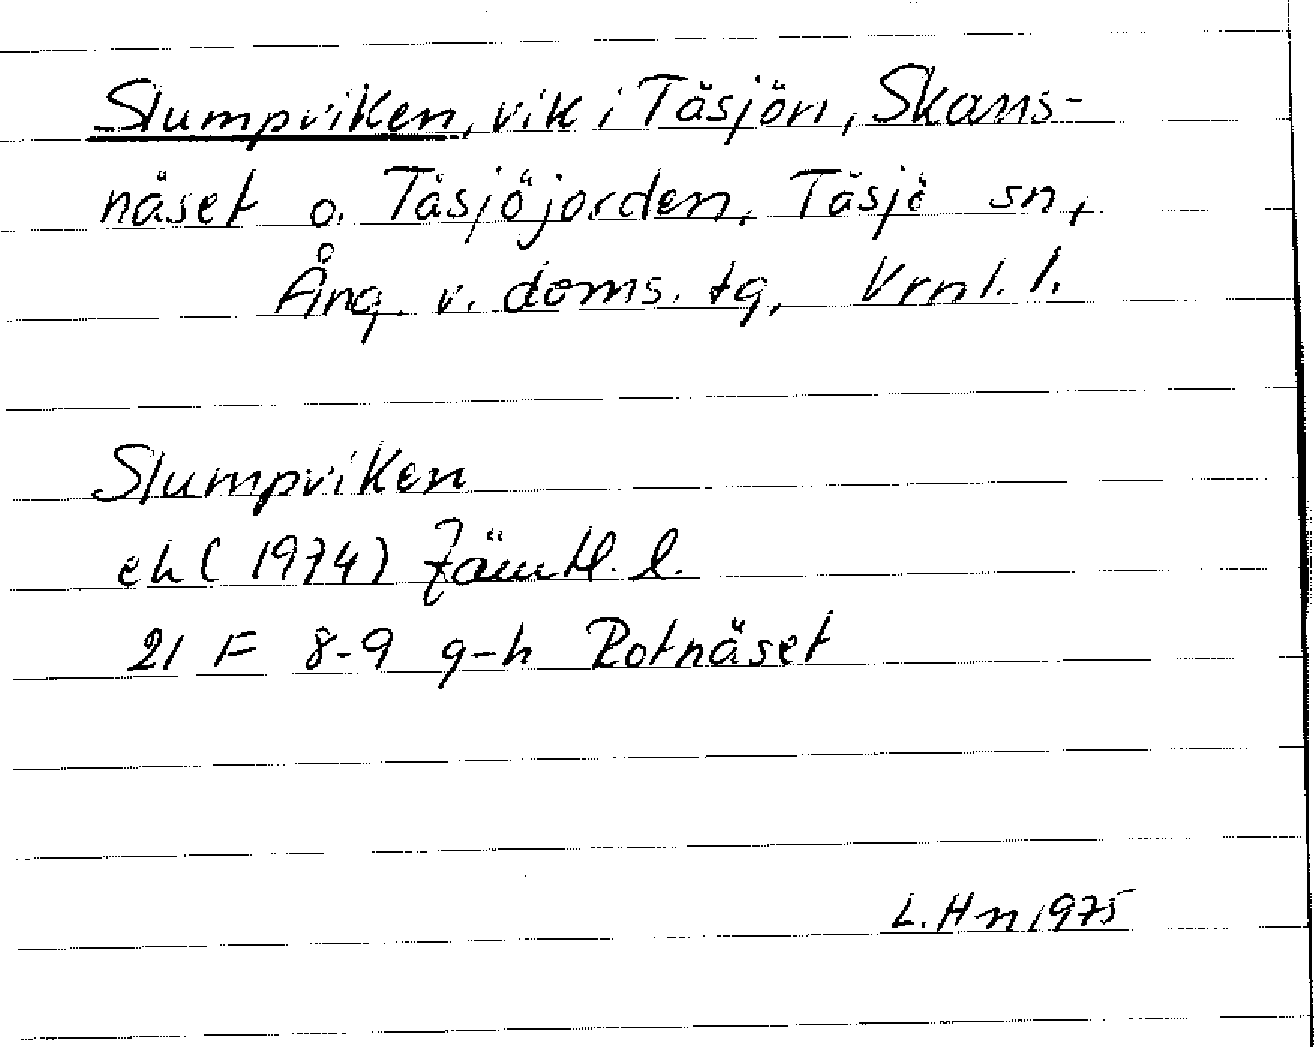 Slumpviken, vik i Täsjön, Skans-
näset o. Täsjöjorden, Täsjö sn,
Ång. v. doms. tg, Vrnl. l.
Slumpviken
ek (1974) Jämtl. l.
21 F 8-9 g-h Rotnäset
L. Hn 1975